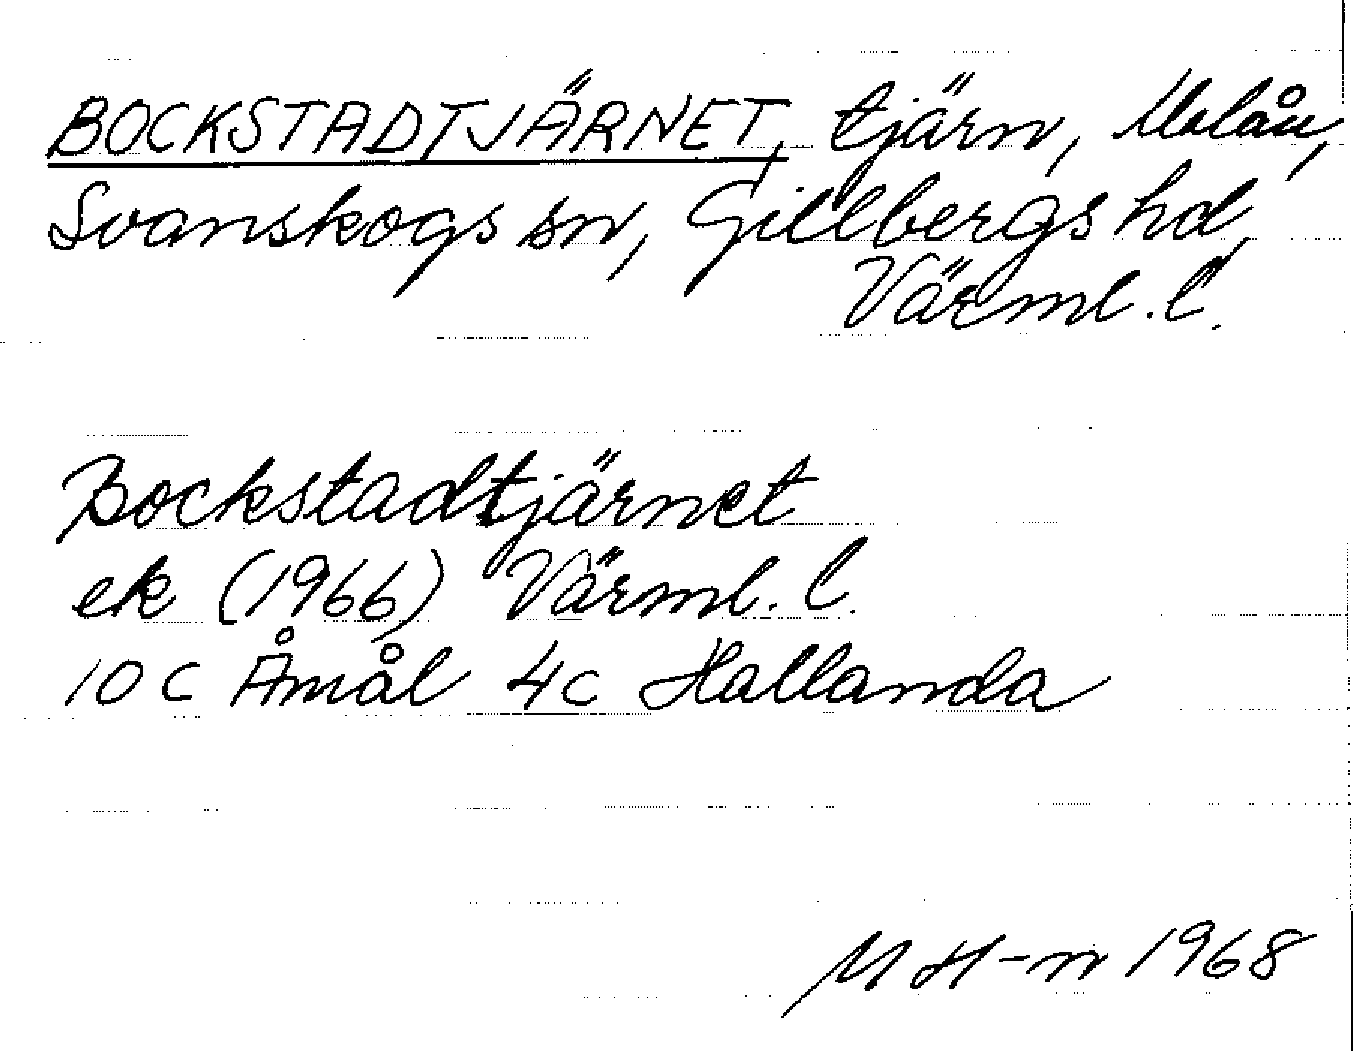 BOCKSTADTJÄRNET, tjärn,
Svanskogs sn, Gillbergs hd,
Värml. l.
Bockstadtjärnet
ek (1966) Värml. l.
10 C Åmål 4c Hallanda
M H-n 1968